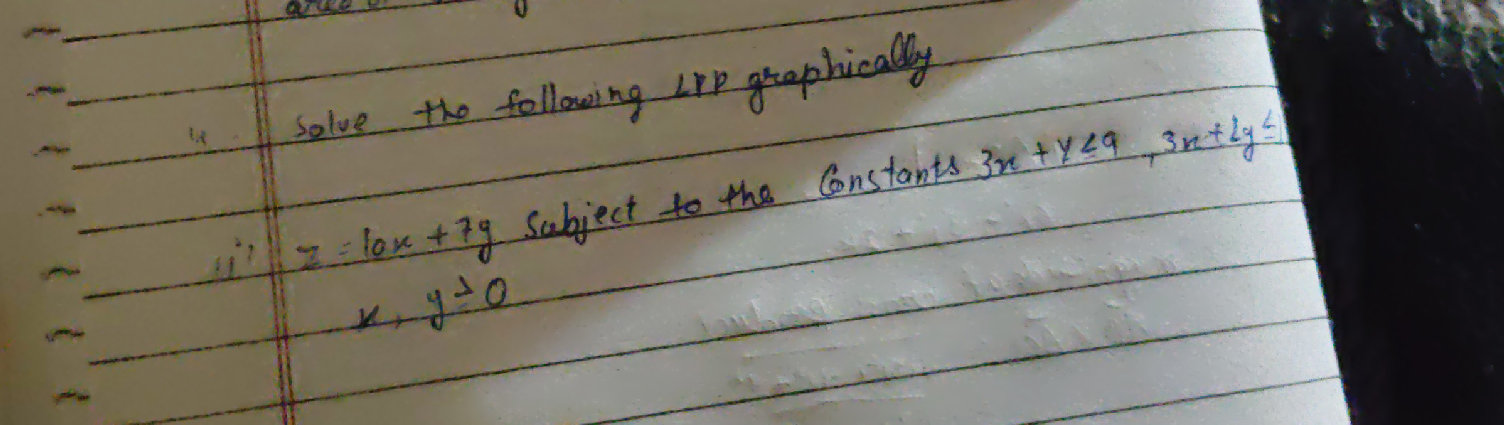 Solve the following LPP graphically
ii) z = 10x + 7y Subject to the Constants 3x + y ≤ 9, 3x + 2y ≤
x, y ≥ 0